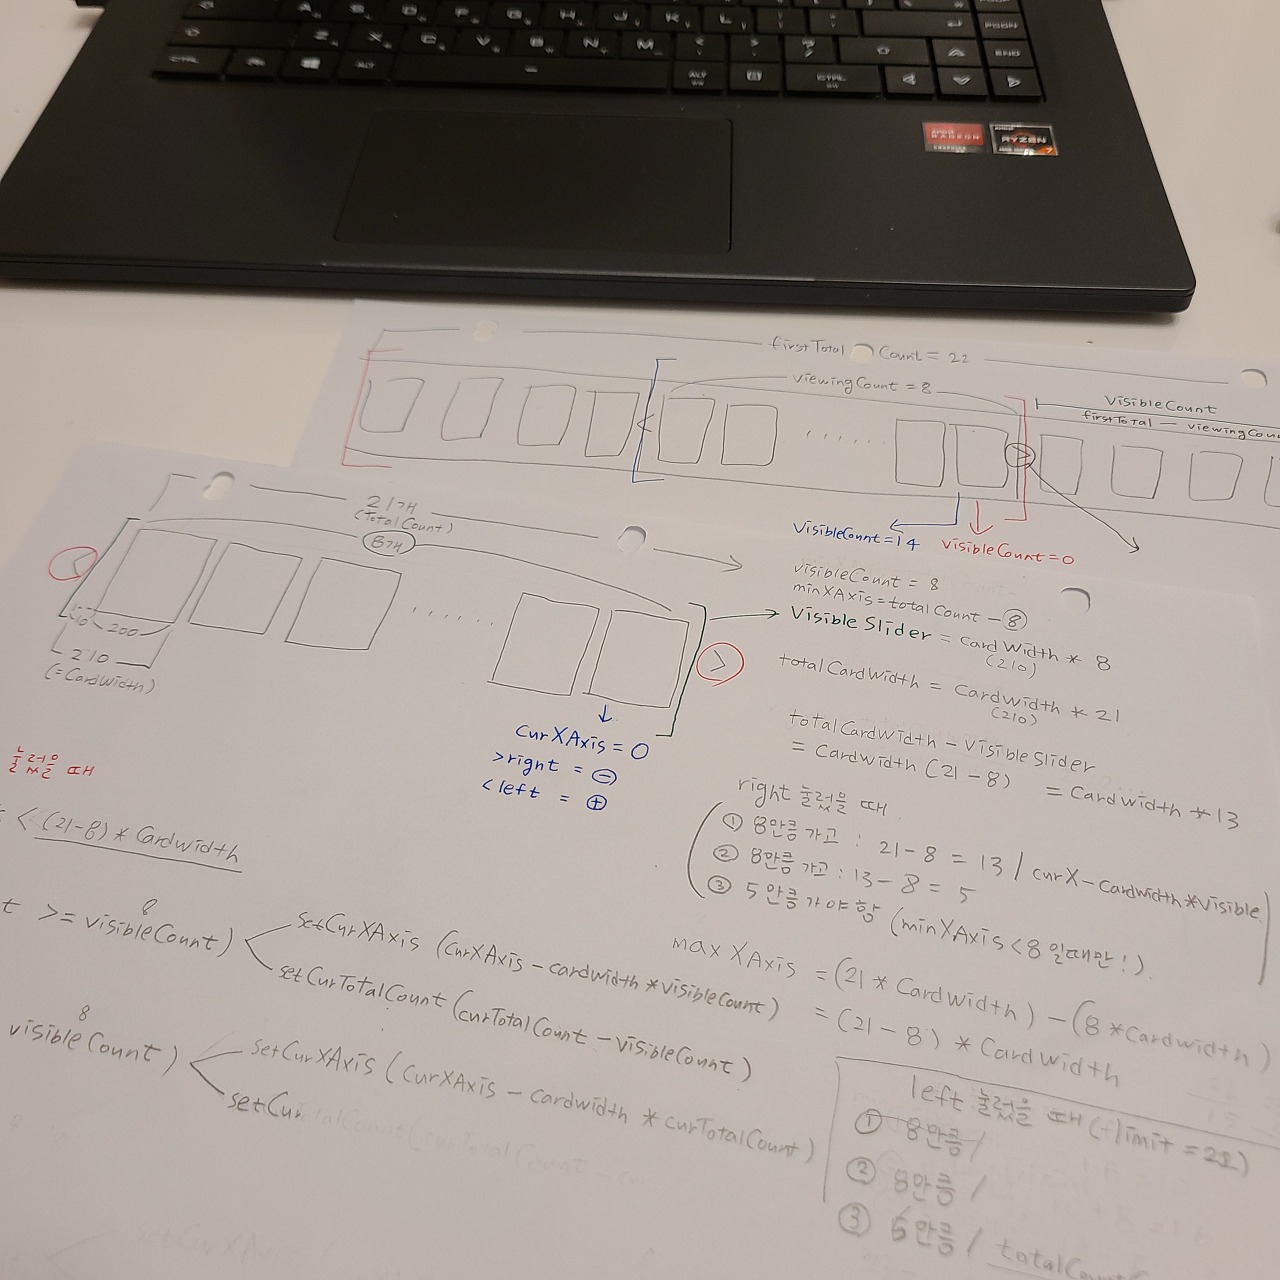 A S D F G H J K L
Z X C V B N M
CTRL ALT ALT CTRL
END
AMD
RADEON
GRAPHICS
AMD
RYZEN
7
firstTotal Count = 22
viewingCount = 8
VisibleCount
firstTotal — viewingCoun
< >
VisibleCount=14 visibleCount=0
21개
(TotalCount)
8개
< >
10 200
210
(=CardWidth)
visibleCount = 8
minXAxis=totalCount-⑧
Visible Slider = card Width * 8
(210)
totalCardWidth = CardWidth * 21
(210)
totalCardWidth - VisibleSlider
= Cardwidth (21-8) = Cardwidth *13
curXAxis = 0
>right = ⊖
<left = ⊕
right 눌렀을 때
① 8만큼 가고 : 21-8 = 13 / curX-cardwidth*visible
② 8만큼 가고 : 13-8 = 5
③ 5만큼 가야 함 (minXAxis<8 일때만!).
max XAxis = (21 * Cardwidth) - (8 *Cardwidth)
= (21-8) * Cardwidth
눌렀을 때
< (21-8) * Cardwidth
8
t >= visibleCount)
setCurXAxis (curXAxis - cardwidth *visibleCount)
setCurTotalCount (curTotalCount -visibleCount)
8
visibleCount)
setCurXAxis (curXAxis - cardwidth * curTotalCount)
setCur
left 눌렀을 때
① 8만큼 /
② 8만큼 /
③ 5만큼 / totalCou